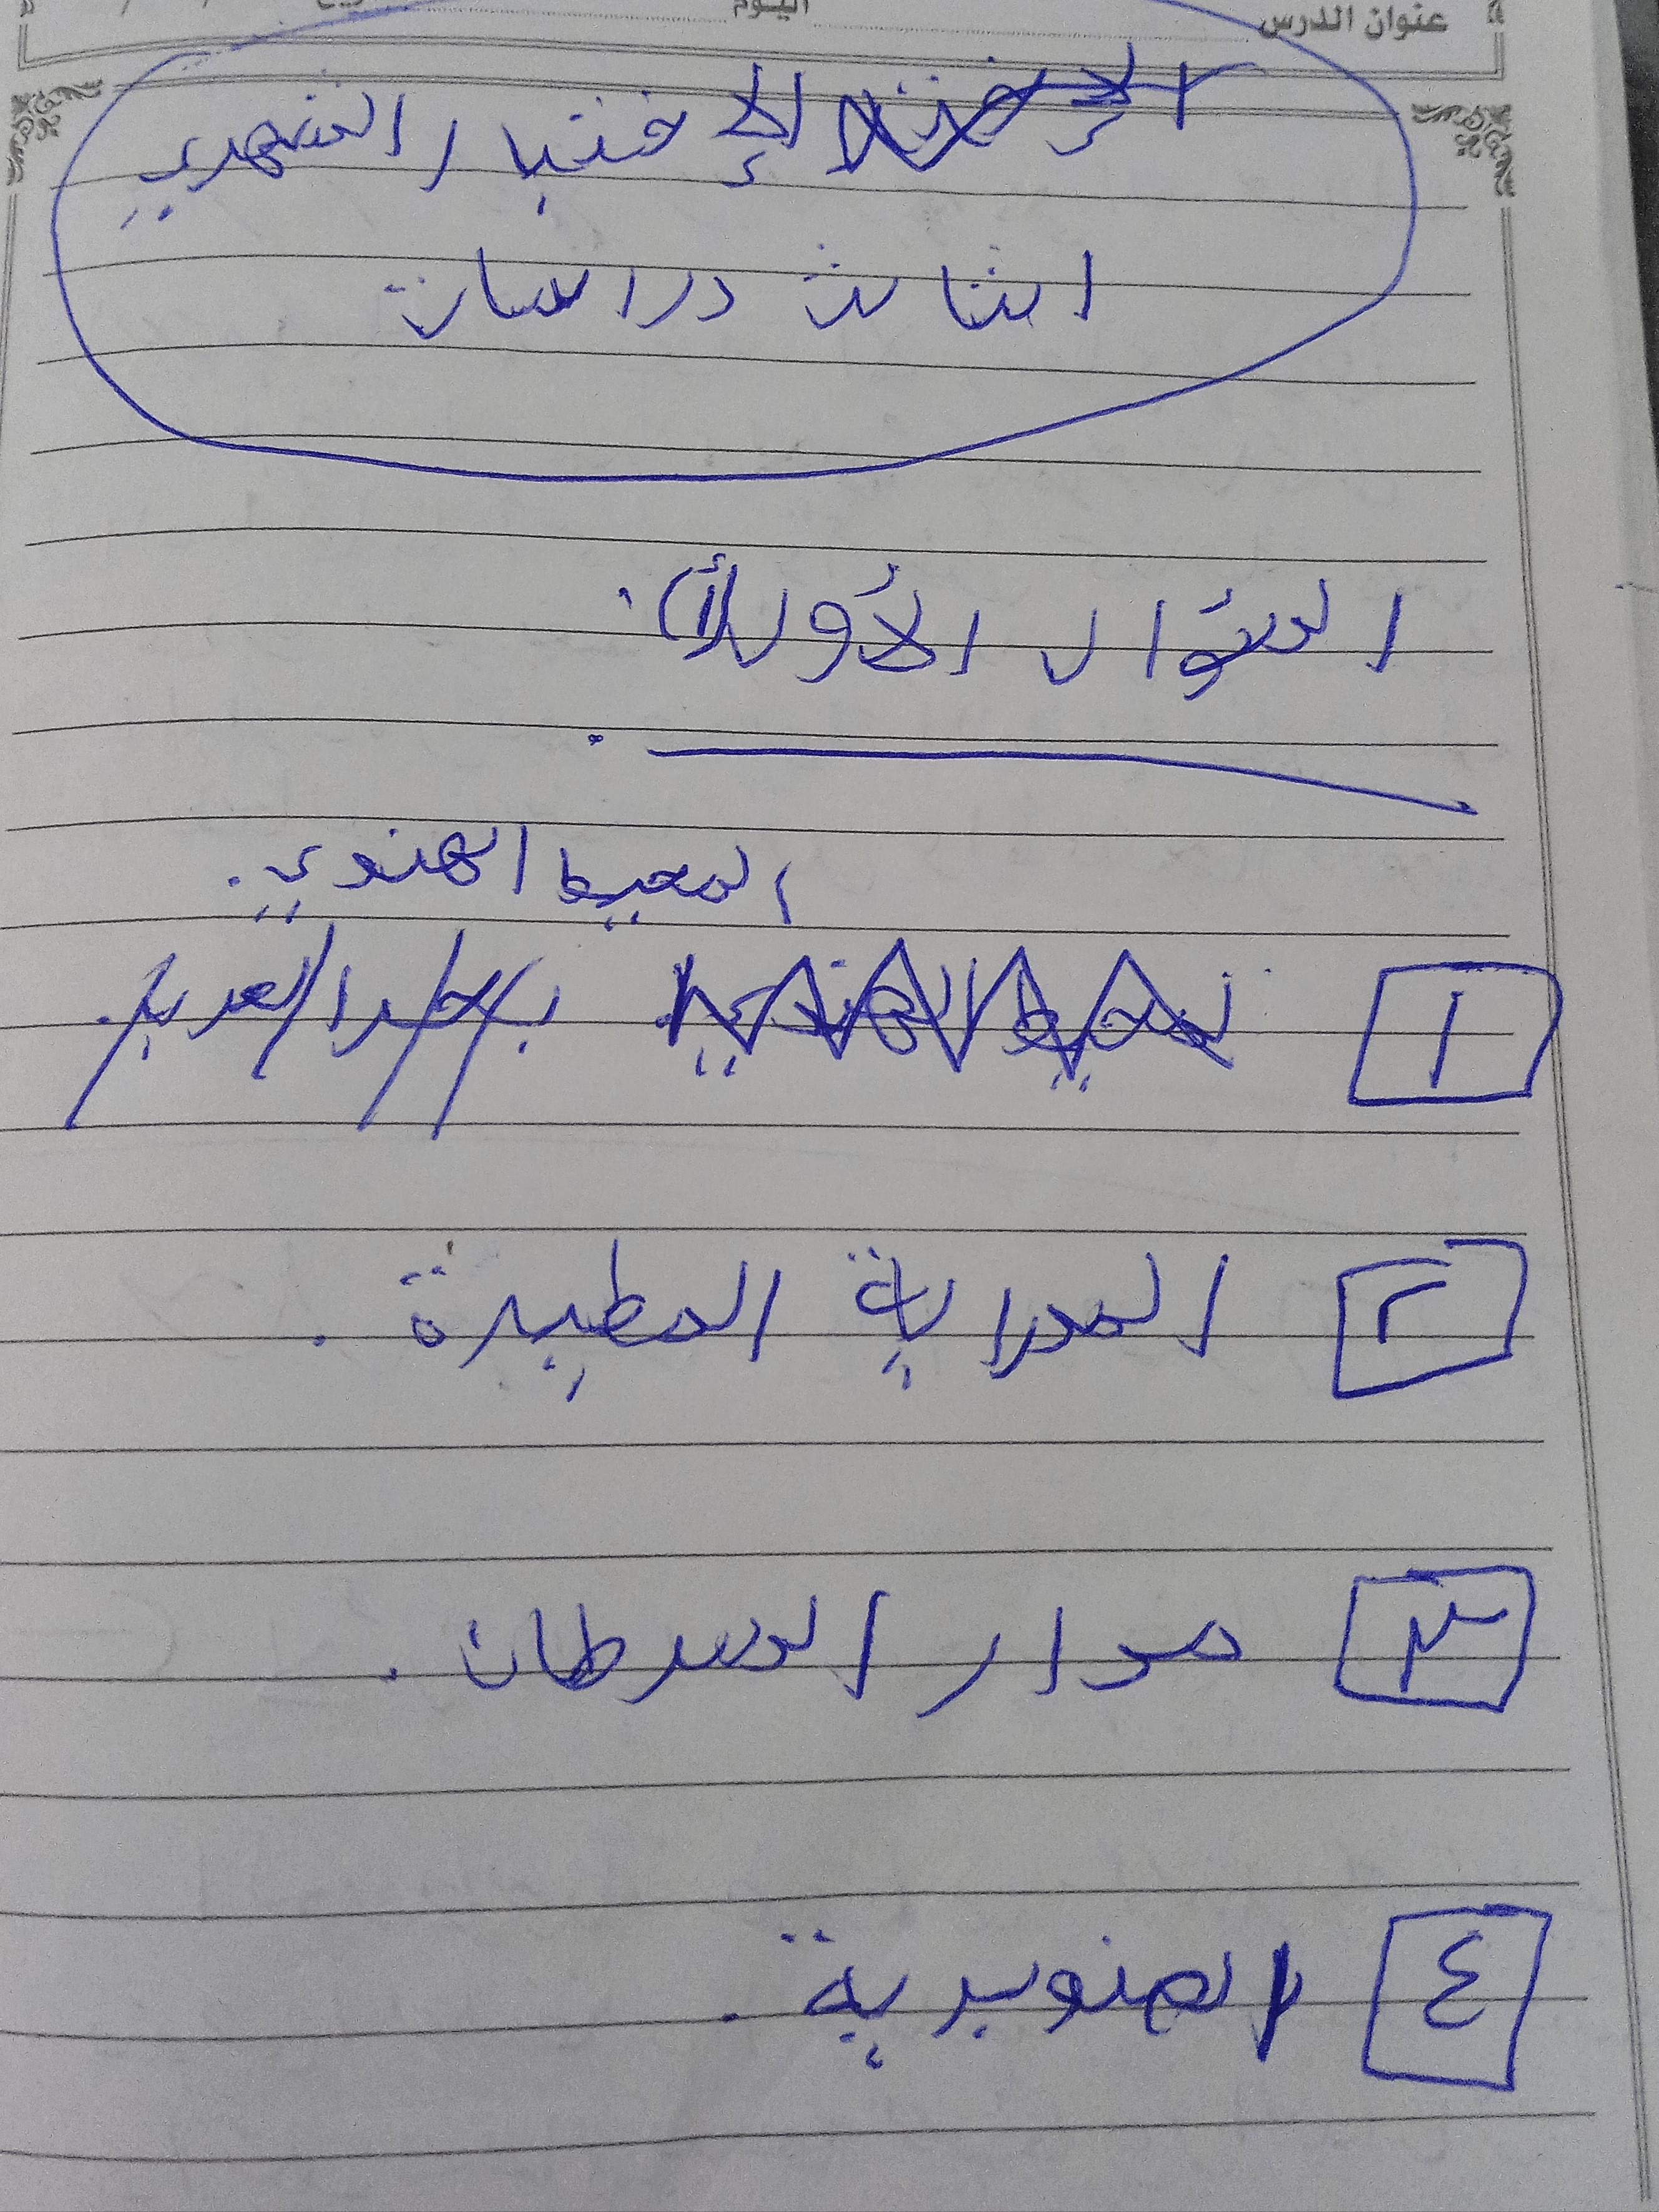 عنوان الدرس اليوم
الإختبار الشهري
الثالث دراسات
السؤال الأول (أ):
المحيط الهندي.
١
٢ المدارية المطيرة.
٣ مدار السرطان.
٤ الصنوبرية.